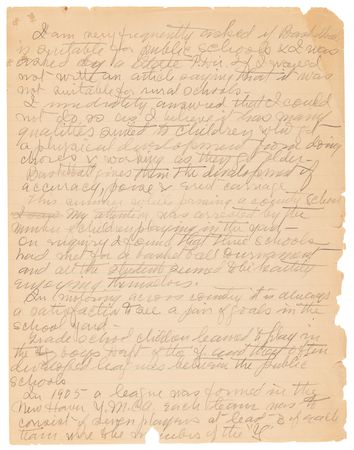 I am very frequently asked if Basketball
is suitable for public schools & I was
asked by a State Phys. Ed. if I would
not write an article saying that it was
not suitable for rural schools.
I immediately answered that I could
not do so as I believe it has many
qualities suited to children who get
a physical development from doing
chores & working as they get older.
Basketball gives them the development of
accuracy, poise & erect carriage.
This summer while passing a county school
my attention was arrested by the
number of children playing in the yard.
On enquiry I found that three schools
had met for a basketball tournament
and all the students seemed to be heartily
enjoying themselves.
In motoring across country it is always
a satisfaction to see a pair of goals in the
school yard.
Grade school children learned to play in
the boys part of the Y and they often
developed leagues between the public
schools
In 1905 a league was formed in the
New Haven Y.M.C.A. each team was to
consist of seven players at least 2 of each
team were to be members of the "Y"